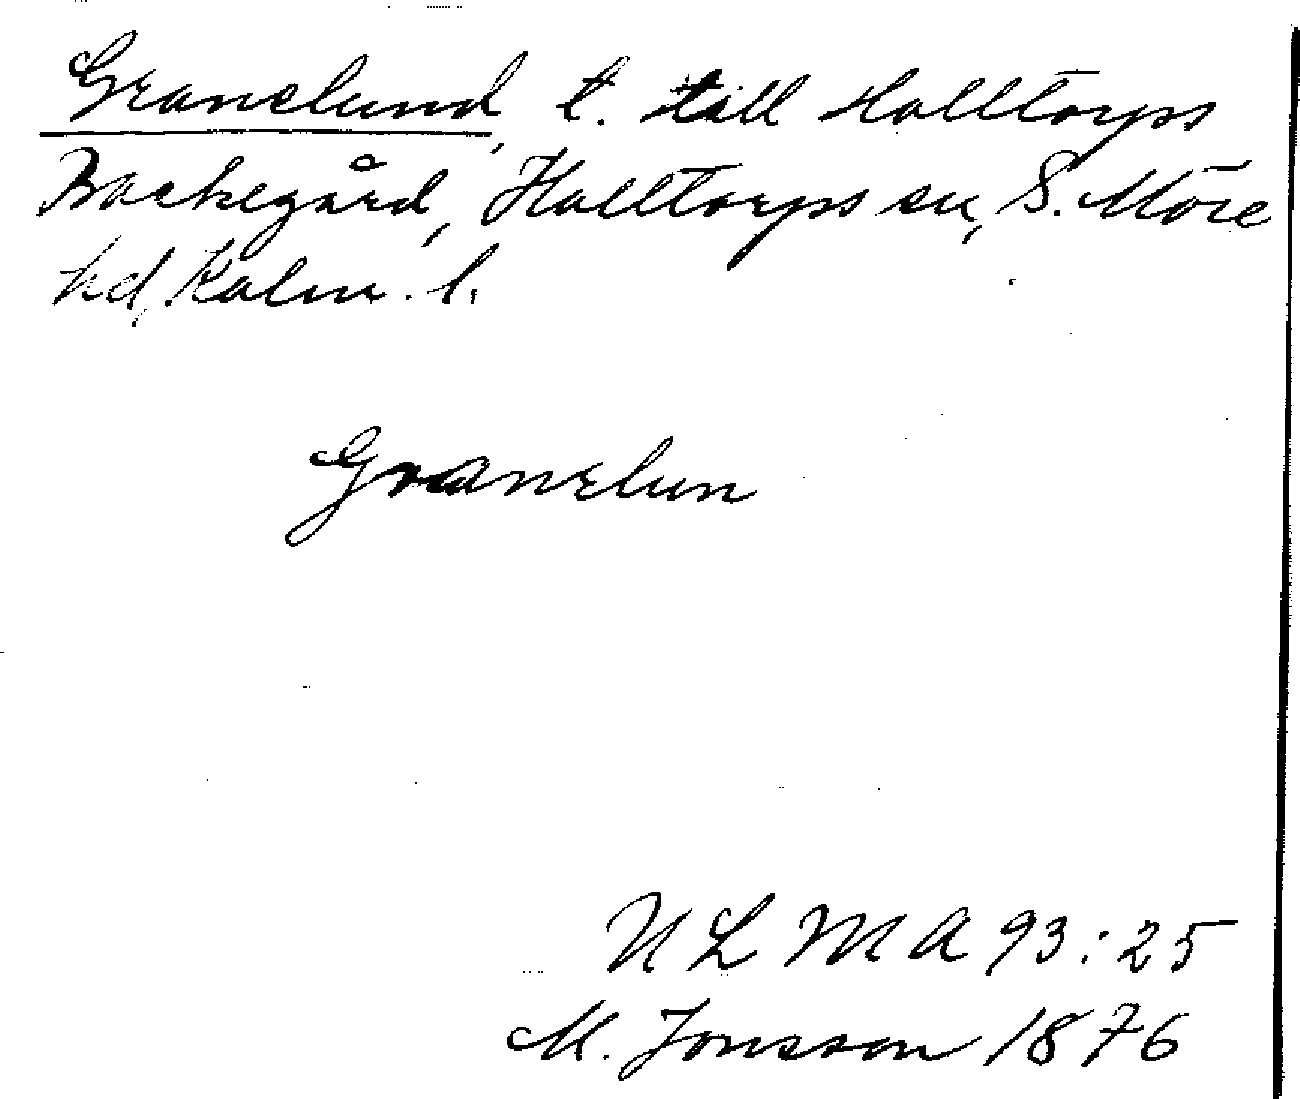 Granelund, t. till Halltorps
Backegård, Halltorps sn, S. Möre
hd, Kalm. l.
Granelun
ULMA 93:25
M. Jonsson 1876